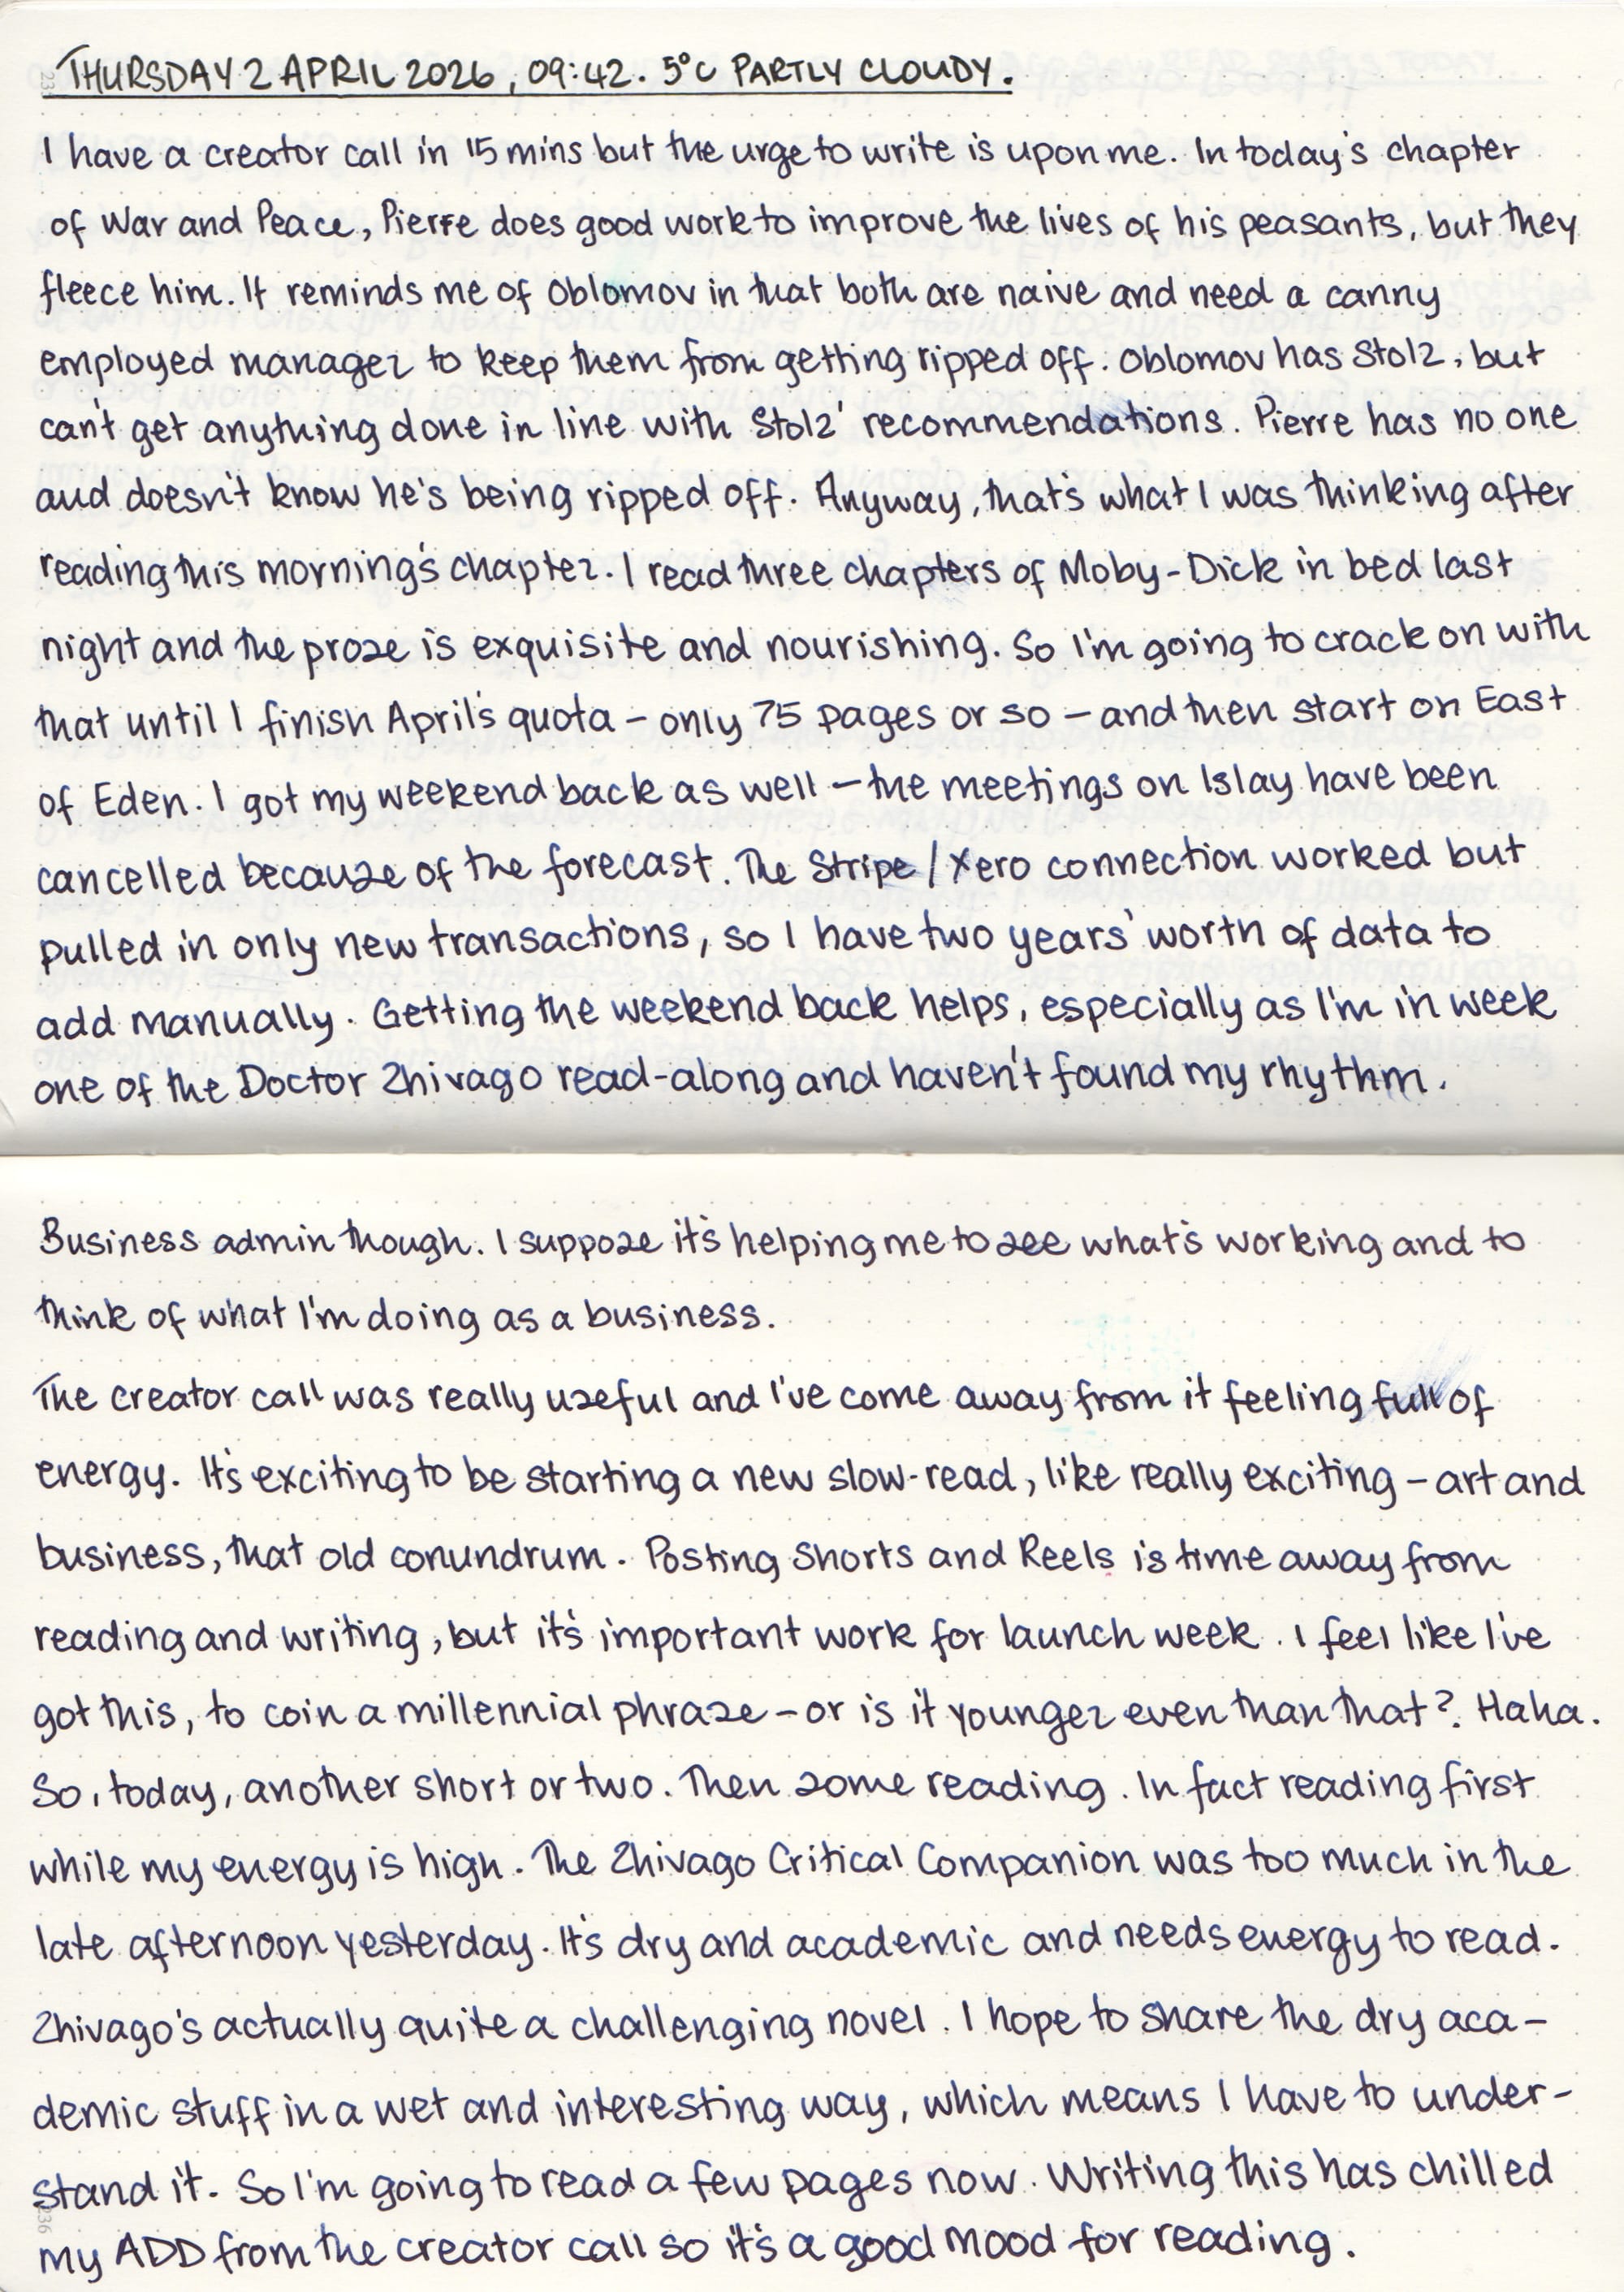 THURSDAY 2 APRIL 2026, 09:42. 5°C PARTLY CLOUDY.
I have a creator call in 15 mins but the urge to write is upon me. In today's chapter
of War and Peace, Pierre does good work to improve the lives of his peasants, but they
fleece him. It reminds me of Oblomov in that both are naive and need a canny
employed manager to keep them from getting ripped off. Oblomov has Stolz, but
can't get anything done in line with Stolz' recommendations. Pierre has no one
and doesn't know he's being ripped off. Anyway, that's what I was thinking after
reading this morning's chapter. I read three chapters of Moby-Dick in bed last
night and the prose is exquisite and nourishing. So I'm going to crack on with
that until I finish April's quota – only 75 pages or so – and then start on East
of Eden. I got my weekend back as well – the meetings on Islay have been
cancelled because of the forecast. The Stripe/Xero connection worked but
pulled in only new transactions, so I have two years' worth of data to
add manually. Getting the weekend back helps, especially as I'm in week
one of the Doctor Zhivago read-along and haven't found my rhythm.
Business admin though. I suppose it's helping me to see what's working and to
think of what I'm doing as a business.
The creator call was really useful and I've come away from it feeling full of
energy. It's exciting to be starting a new slow-read, like really exciting – art and
business, that old conundrum. Posting Shorts and Reels is time away from
reading and writing, but it's important work for launch week. I feel like I've
got this, to coin a millennial phrase – or is it younger even than that? Haha.
So, today, another short or two. Then some reading. In fact reading first
while my energy is high. The Zhivago Critical Companion was too much in the
late afternoon yesterday. It's dry and academic and needs energy to read.
Zhivago's actually quite a challenging novel. I hope to share the dry aca-
demic stuff in a wet and interesting way, which means I have to under-
stand it. So I'm going to read a few pages now. Writing this has chilled
236
my ADD from the creator call so it's a good mood for reading.